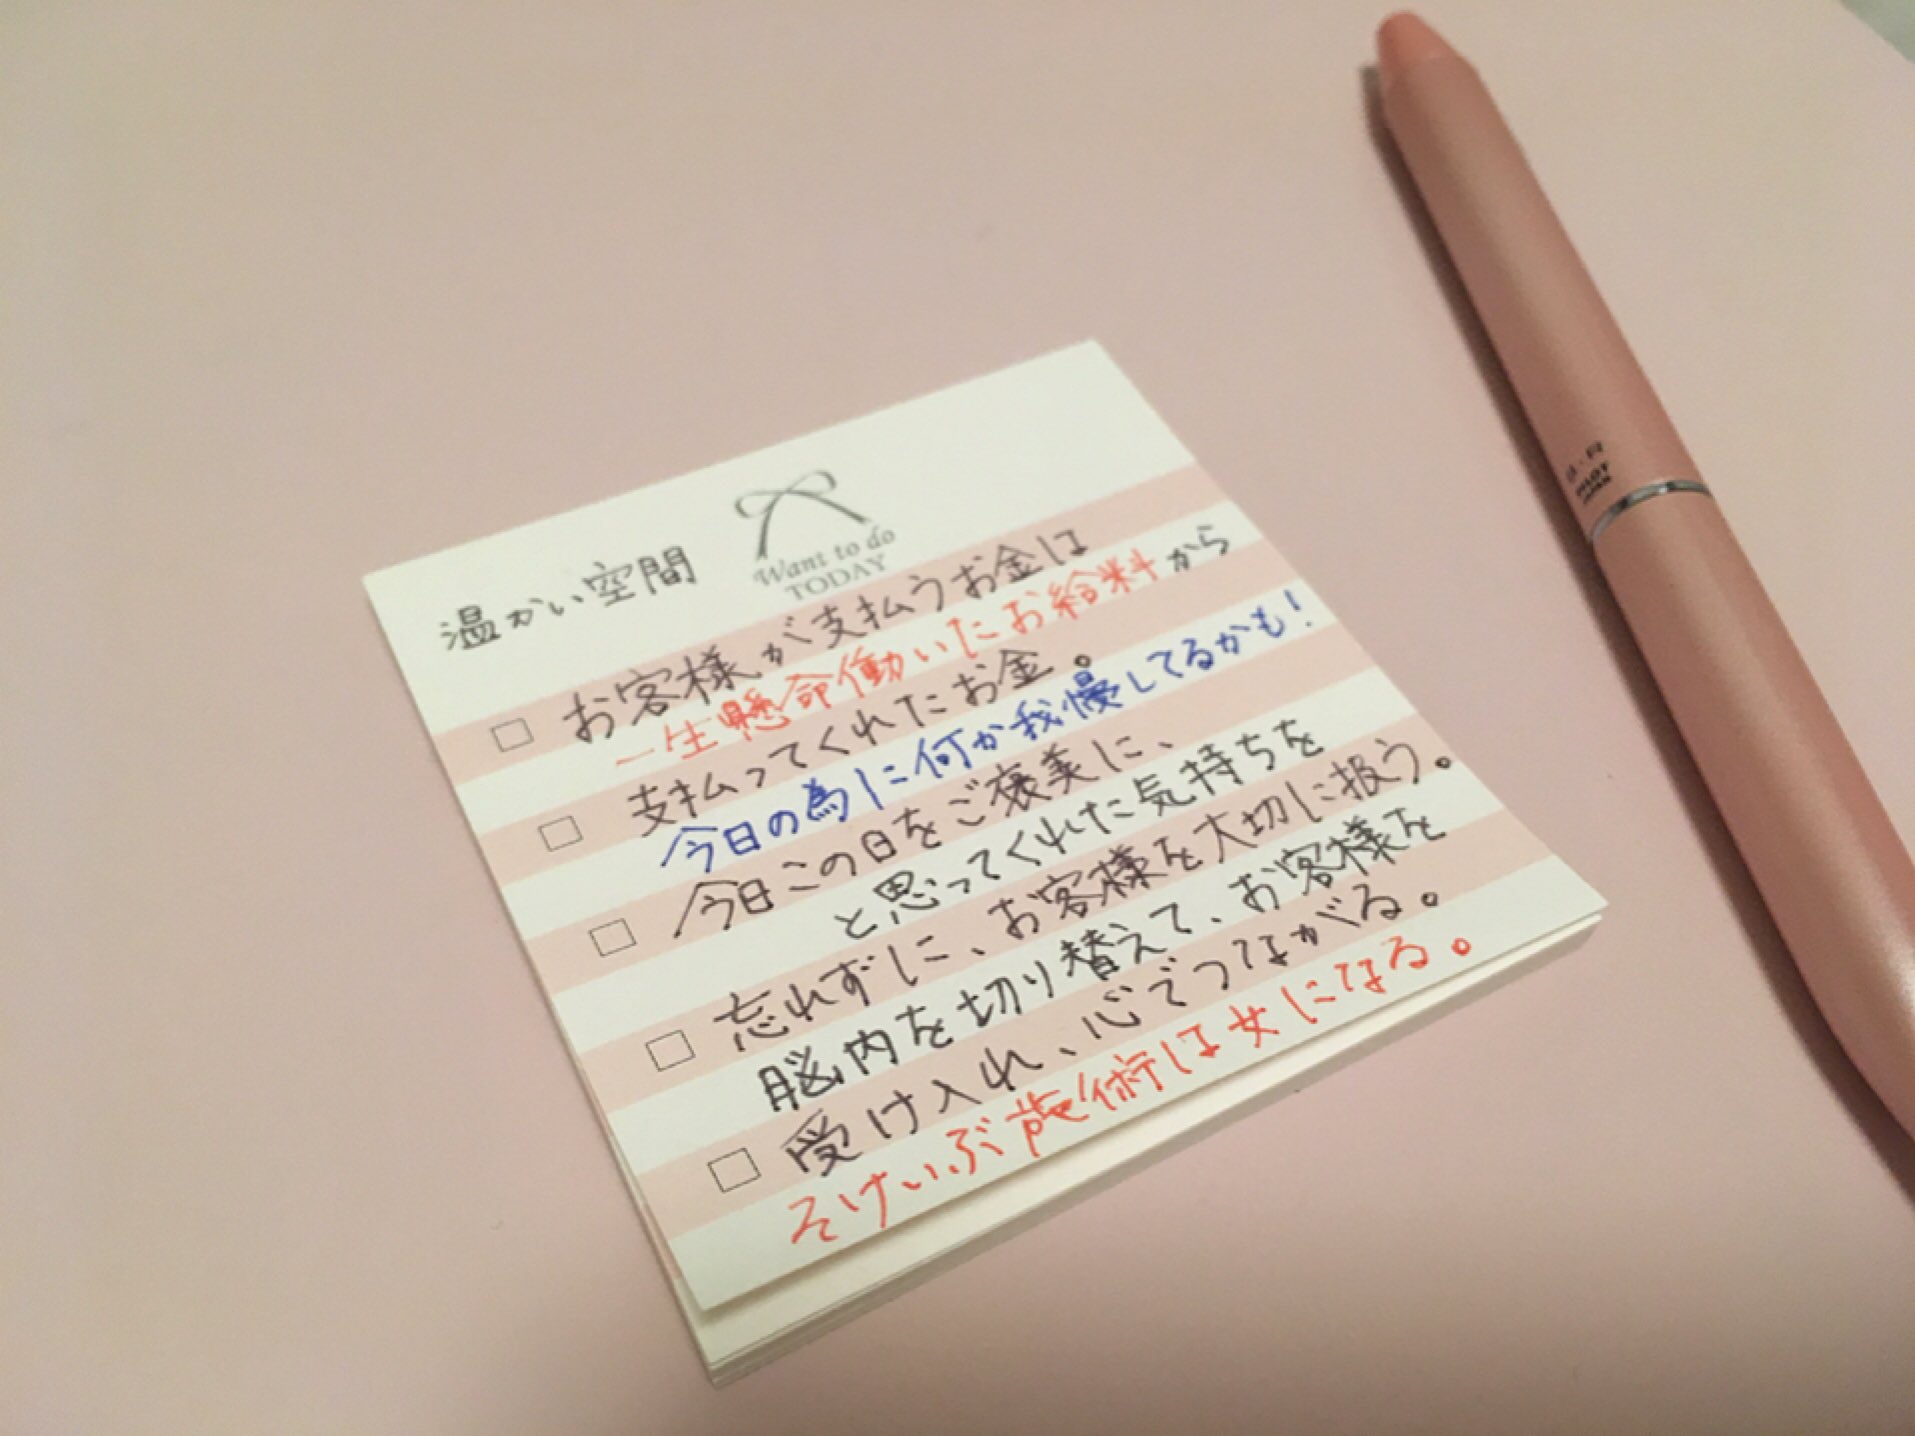 温かい空間
Want to do
TODAY
お客様が支払うお金は
一生懸命働いたお給料から
支払ってくれたお金。
今日の為に何か我慢してるかも!
今日この日をご褒美に、
と思ってくれた気持ちを
忘れずに、お客様を大切に扱う。
脳内を切り替えて、お客様を
受け入れ、心でつながる。
術は女になる。
PILOT
JAPAN